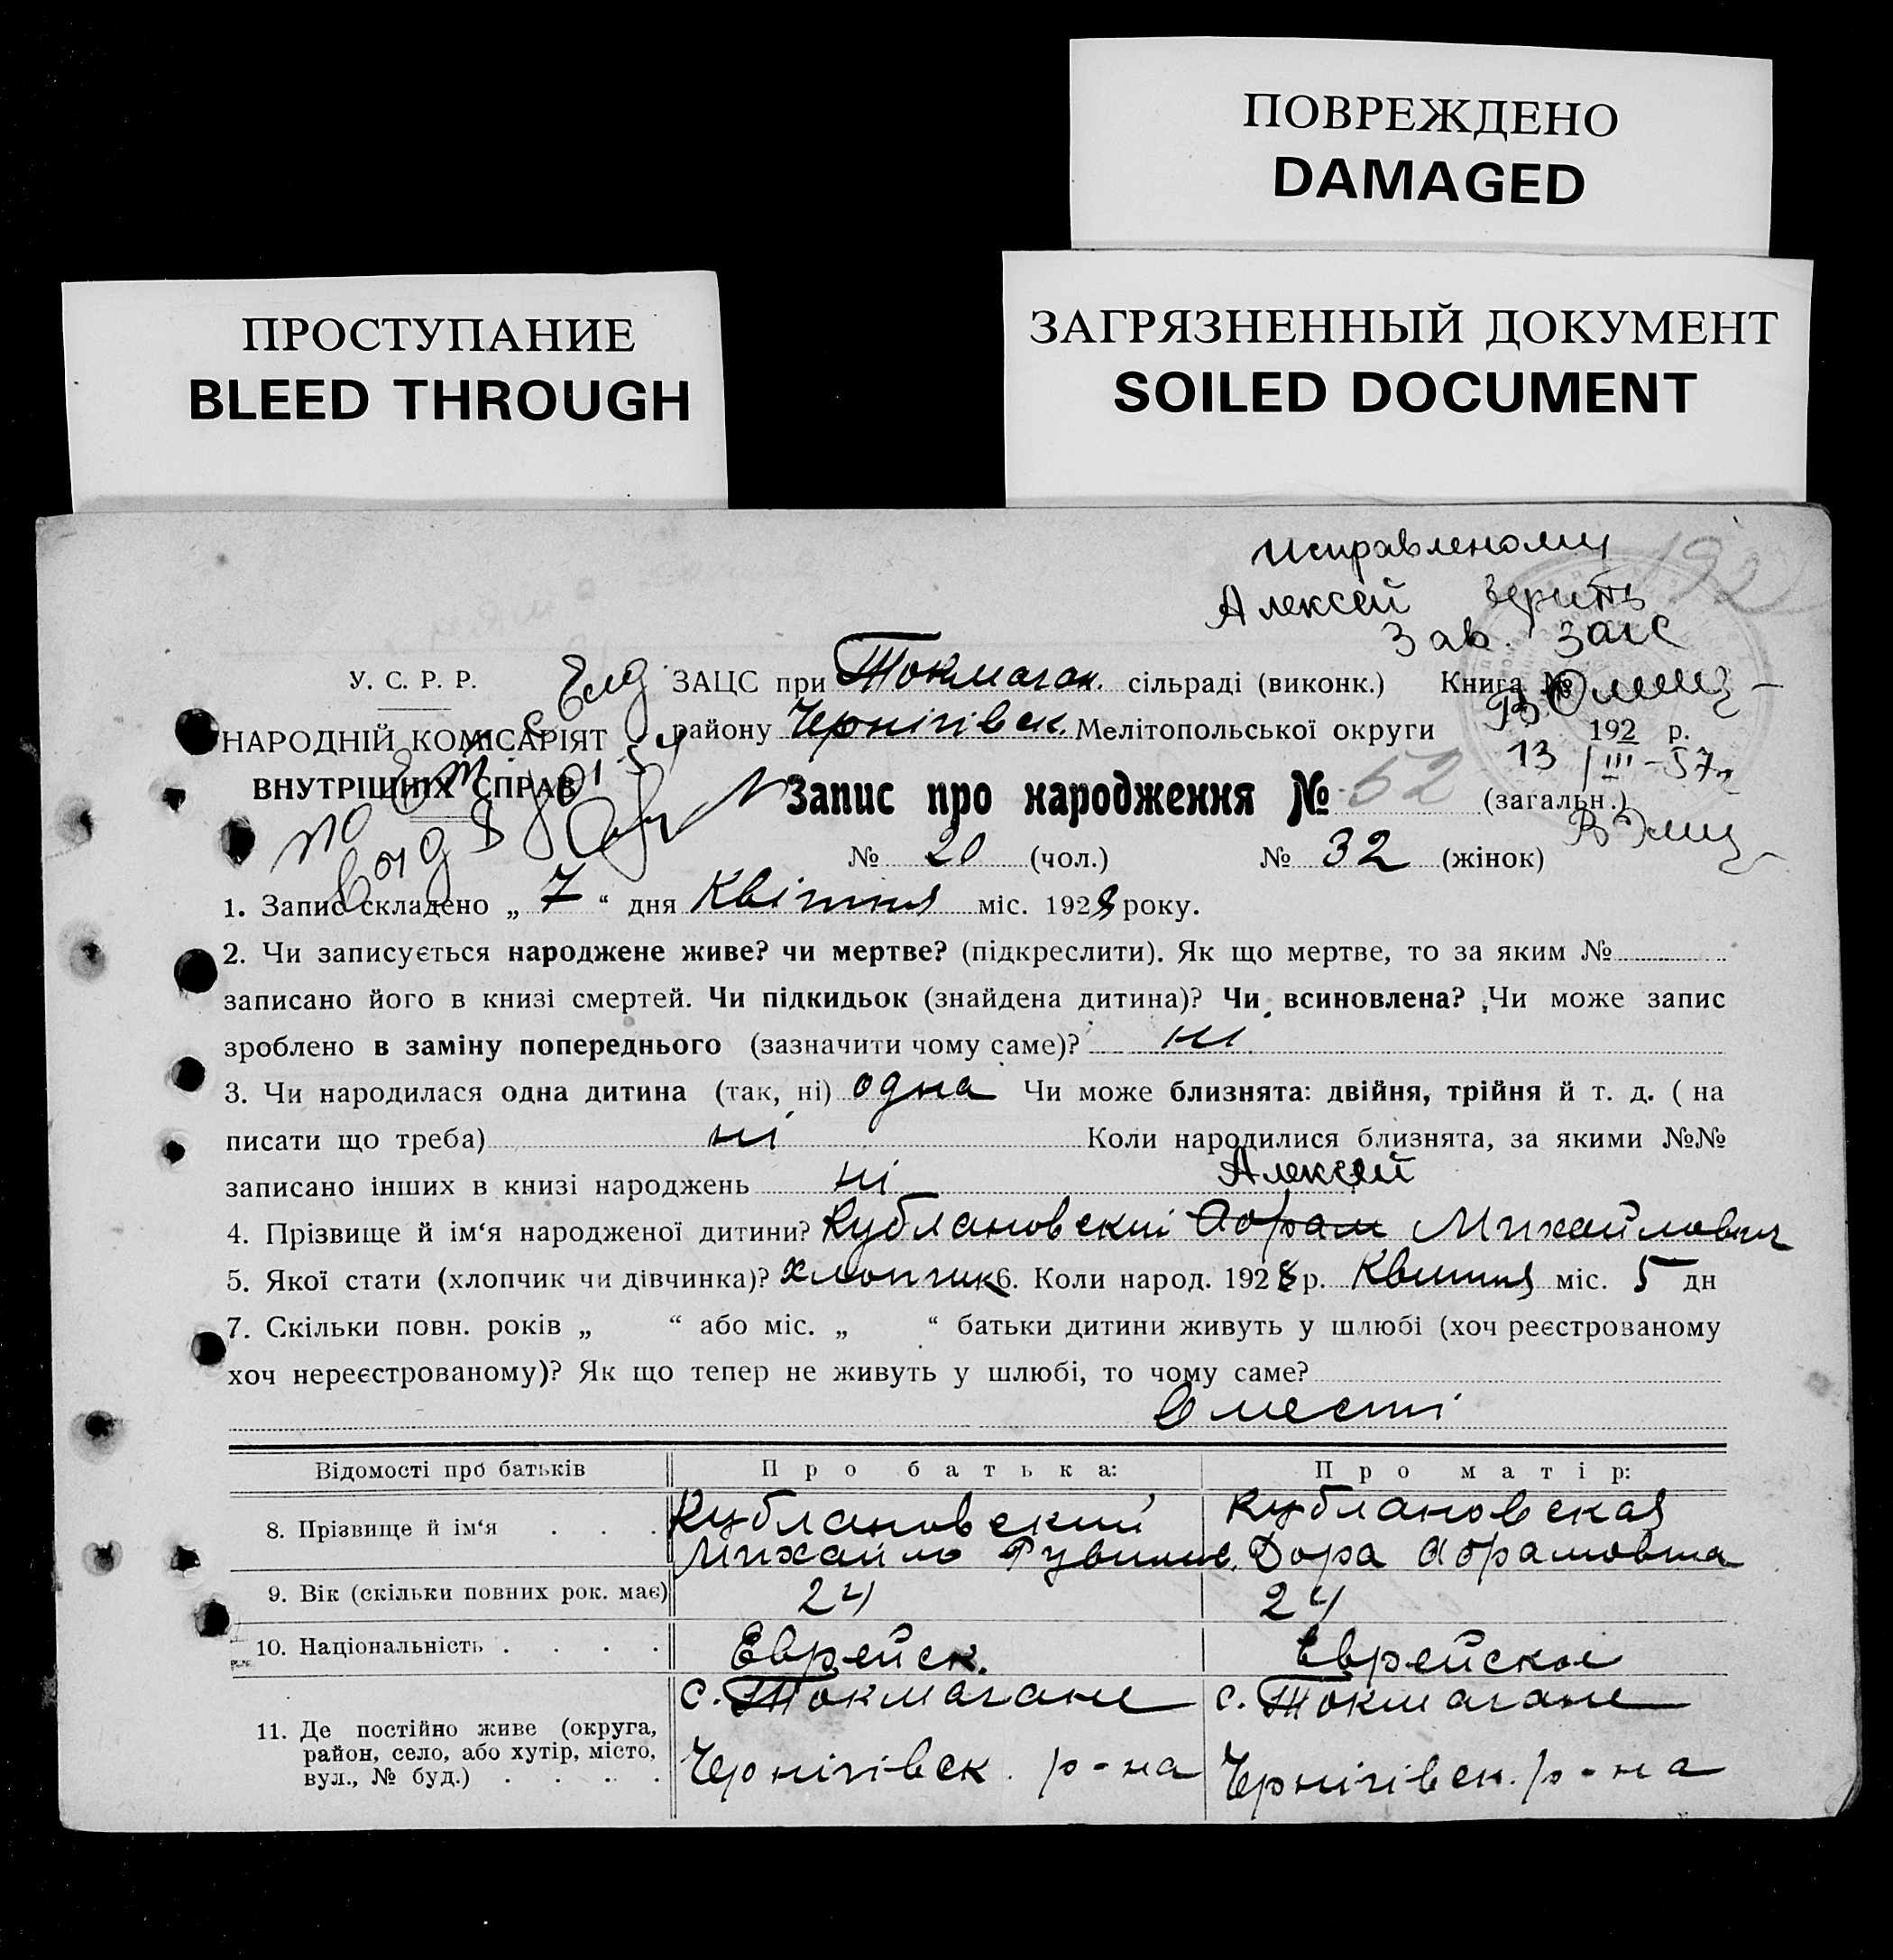 ПОВРЕЖДЕНО
DAMAGED
ПРОСТУПАНИЕ
BLEED THROUGH
ЗАГРЯЗНЕННЫЙ ДОКУМЕНТ
SOILED DOCUMENT
Исправленому
Алексей верить
Зав. Загс
13/III-57г
У. С. Р. Р.
НАРОДНІЙ КОМІСАРІЯТ
ВНУТРІШНІХ СПРАВ
ЗАЦС при Токмаган. сільраді (виконк.) Книга №
району Чернігівск. Мелітопольської округи 192 р.
Запис про народження № 52 (загальн.)
№ 20 (чол.) № 32 (жінок)
1. Запис складено „ 7 “ дня Квітня міс. 1928 року.
2. Чи записується народжене живе? чи мертве? (підкреслити). Як що мертве, то за яким №
записано його в книзі смертей. Чи підкидьок (знайдена дитина)? Чи всиновлена? Чи може запис
зроблено в заміну попереднього (зазначити чому саме)? ні
3. Чи народилася одна дитина (так, ні) одна Чи може близнята: двійня, трійня й т. д. ( на
писати що треба) ні Коли народилися близнята, за якими №№
записано інших в книзі народжень ні Алексей
4. Прізвище й ім‘я народженої дитини? Кублановский Абрам Михайлович
5. Якої стати (хлопчик чи дівчинка)? хлопчик 6. Коли народ. 1928 р. Квітня міс. 5 дн
7. Скільки повн. років „ “ або міс. „ “ батьки дитини живуть у шлюбі (хоч реєстрованому
хоч нереєстрованому)? Як що тепер не живуть у шлюбі, то чому саме?
Вместі
Відомості про батьків Про батька: Про матір:
8. Прізвище й ім‘я . . . Кублановский Кублановская
Михайло Рувимов. Дора Абрамовна
9. Вік (скільки повних рок. має) 24 24
10. Національність . . . . Еврейск. Еврейское
11. Де постійно живе (округа,
район, село, або хутір, місто,
вул., № буд.) . . . .
с. Токмагане с. Токмагане
Чернігівск. р-на Чернігівск. р-на